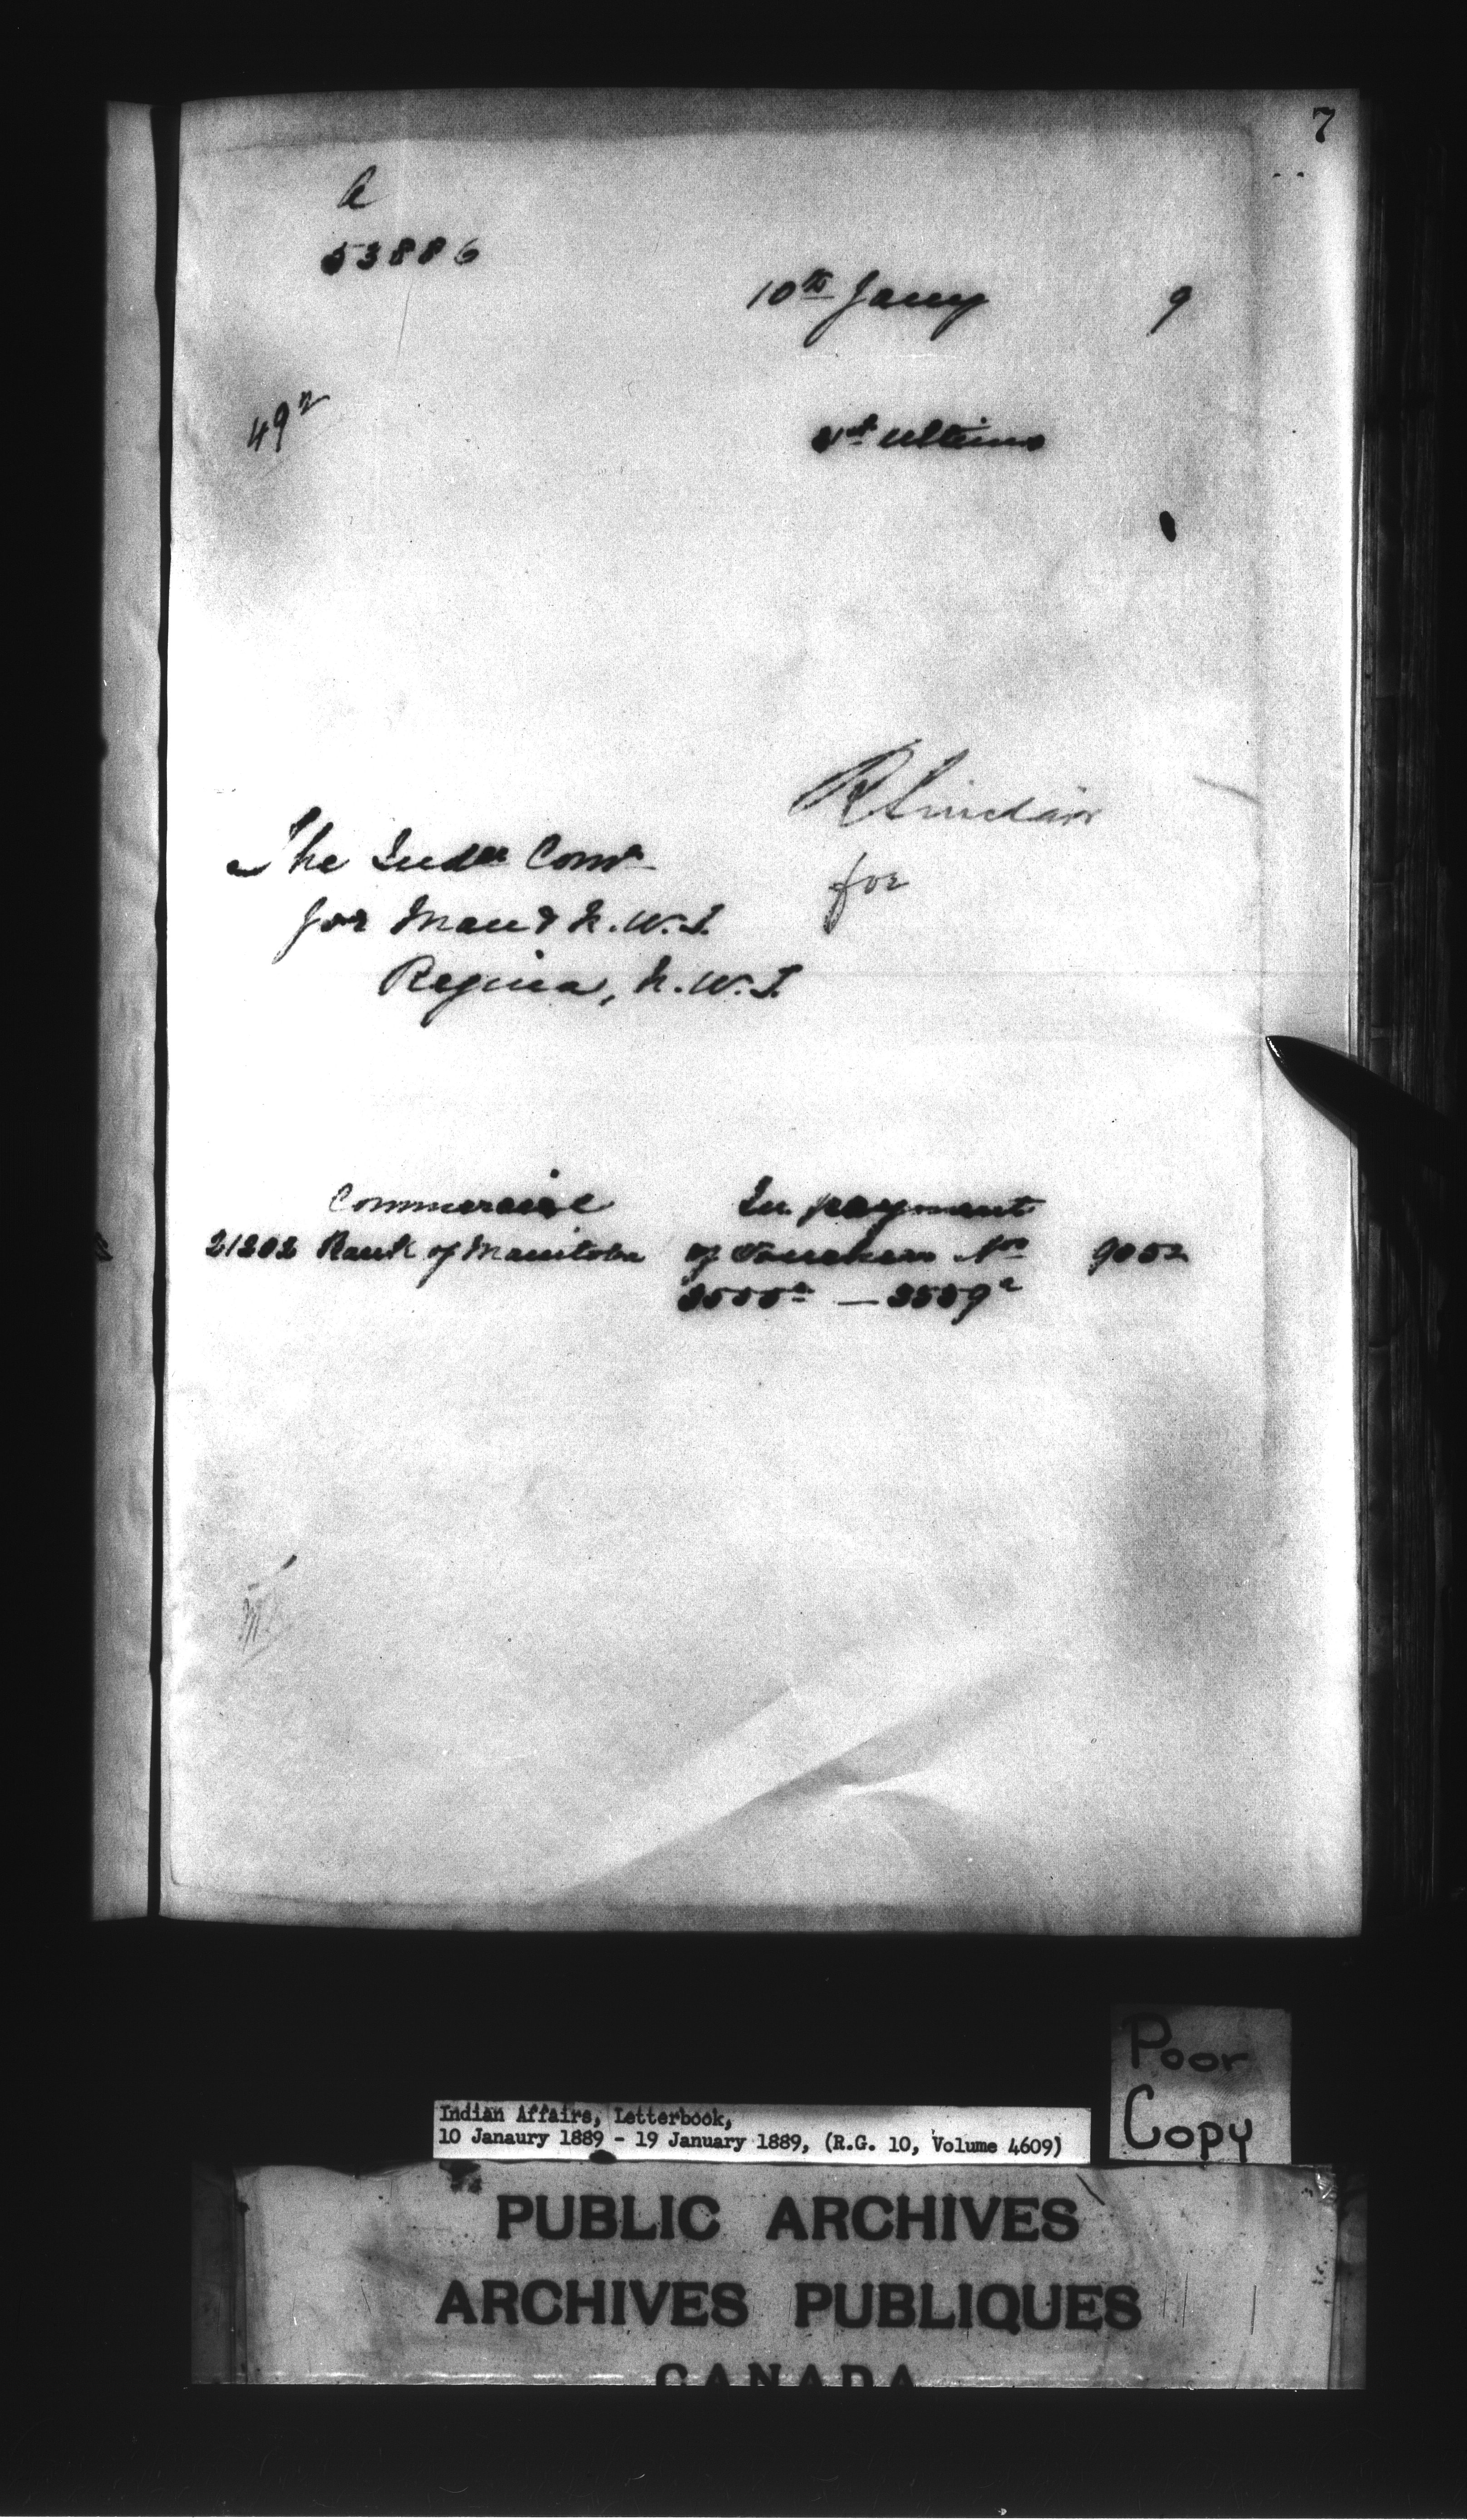 7
A
53886
10th Jany 9
49
ultimo
R Sinclair
for
The Indn Comr
for Man & N.W.T.
Regina, N.W.T.
Commercial In payment
21202 Bank of Manitoba of Vouchers Nos 9052
Poor
Copy
Indian Affairs, Letterbook,
10 Janaury 1889 - 19 January 1889, (R.G. 10, Volume 4609)
PUBLIC ARCHIVES
ARCHIVES PUBLIQUES
CANADA